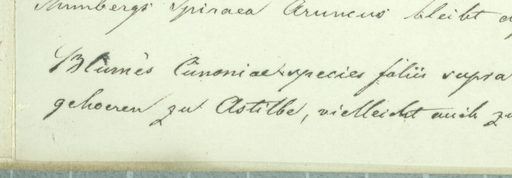 Thunbergs Spiraea Aruncus bleibt
Blume's Cunoniae species foliis supra
gehoeren zu Astilbe, vielleicht auch zu